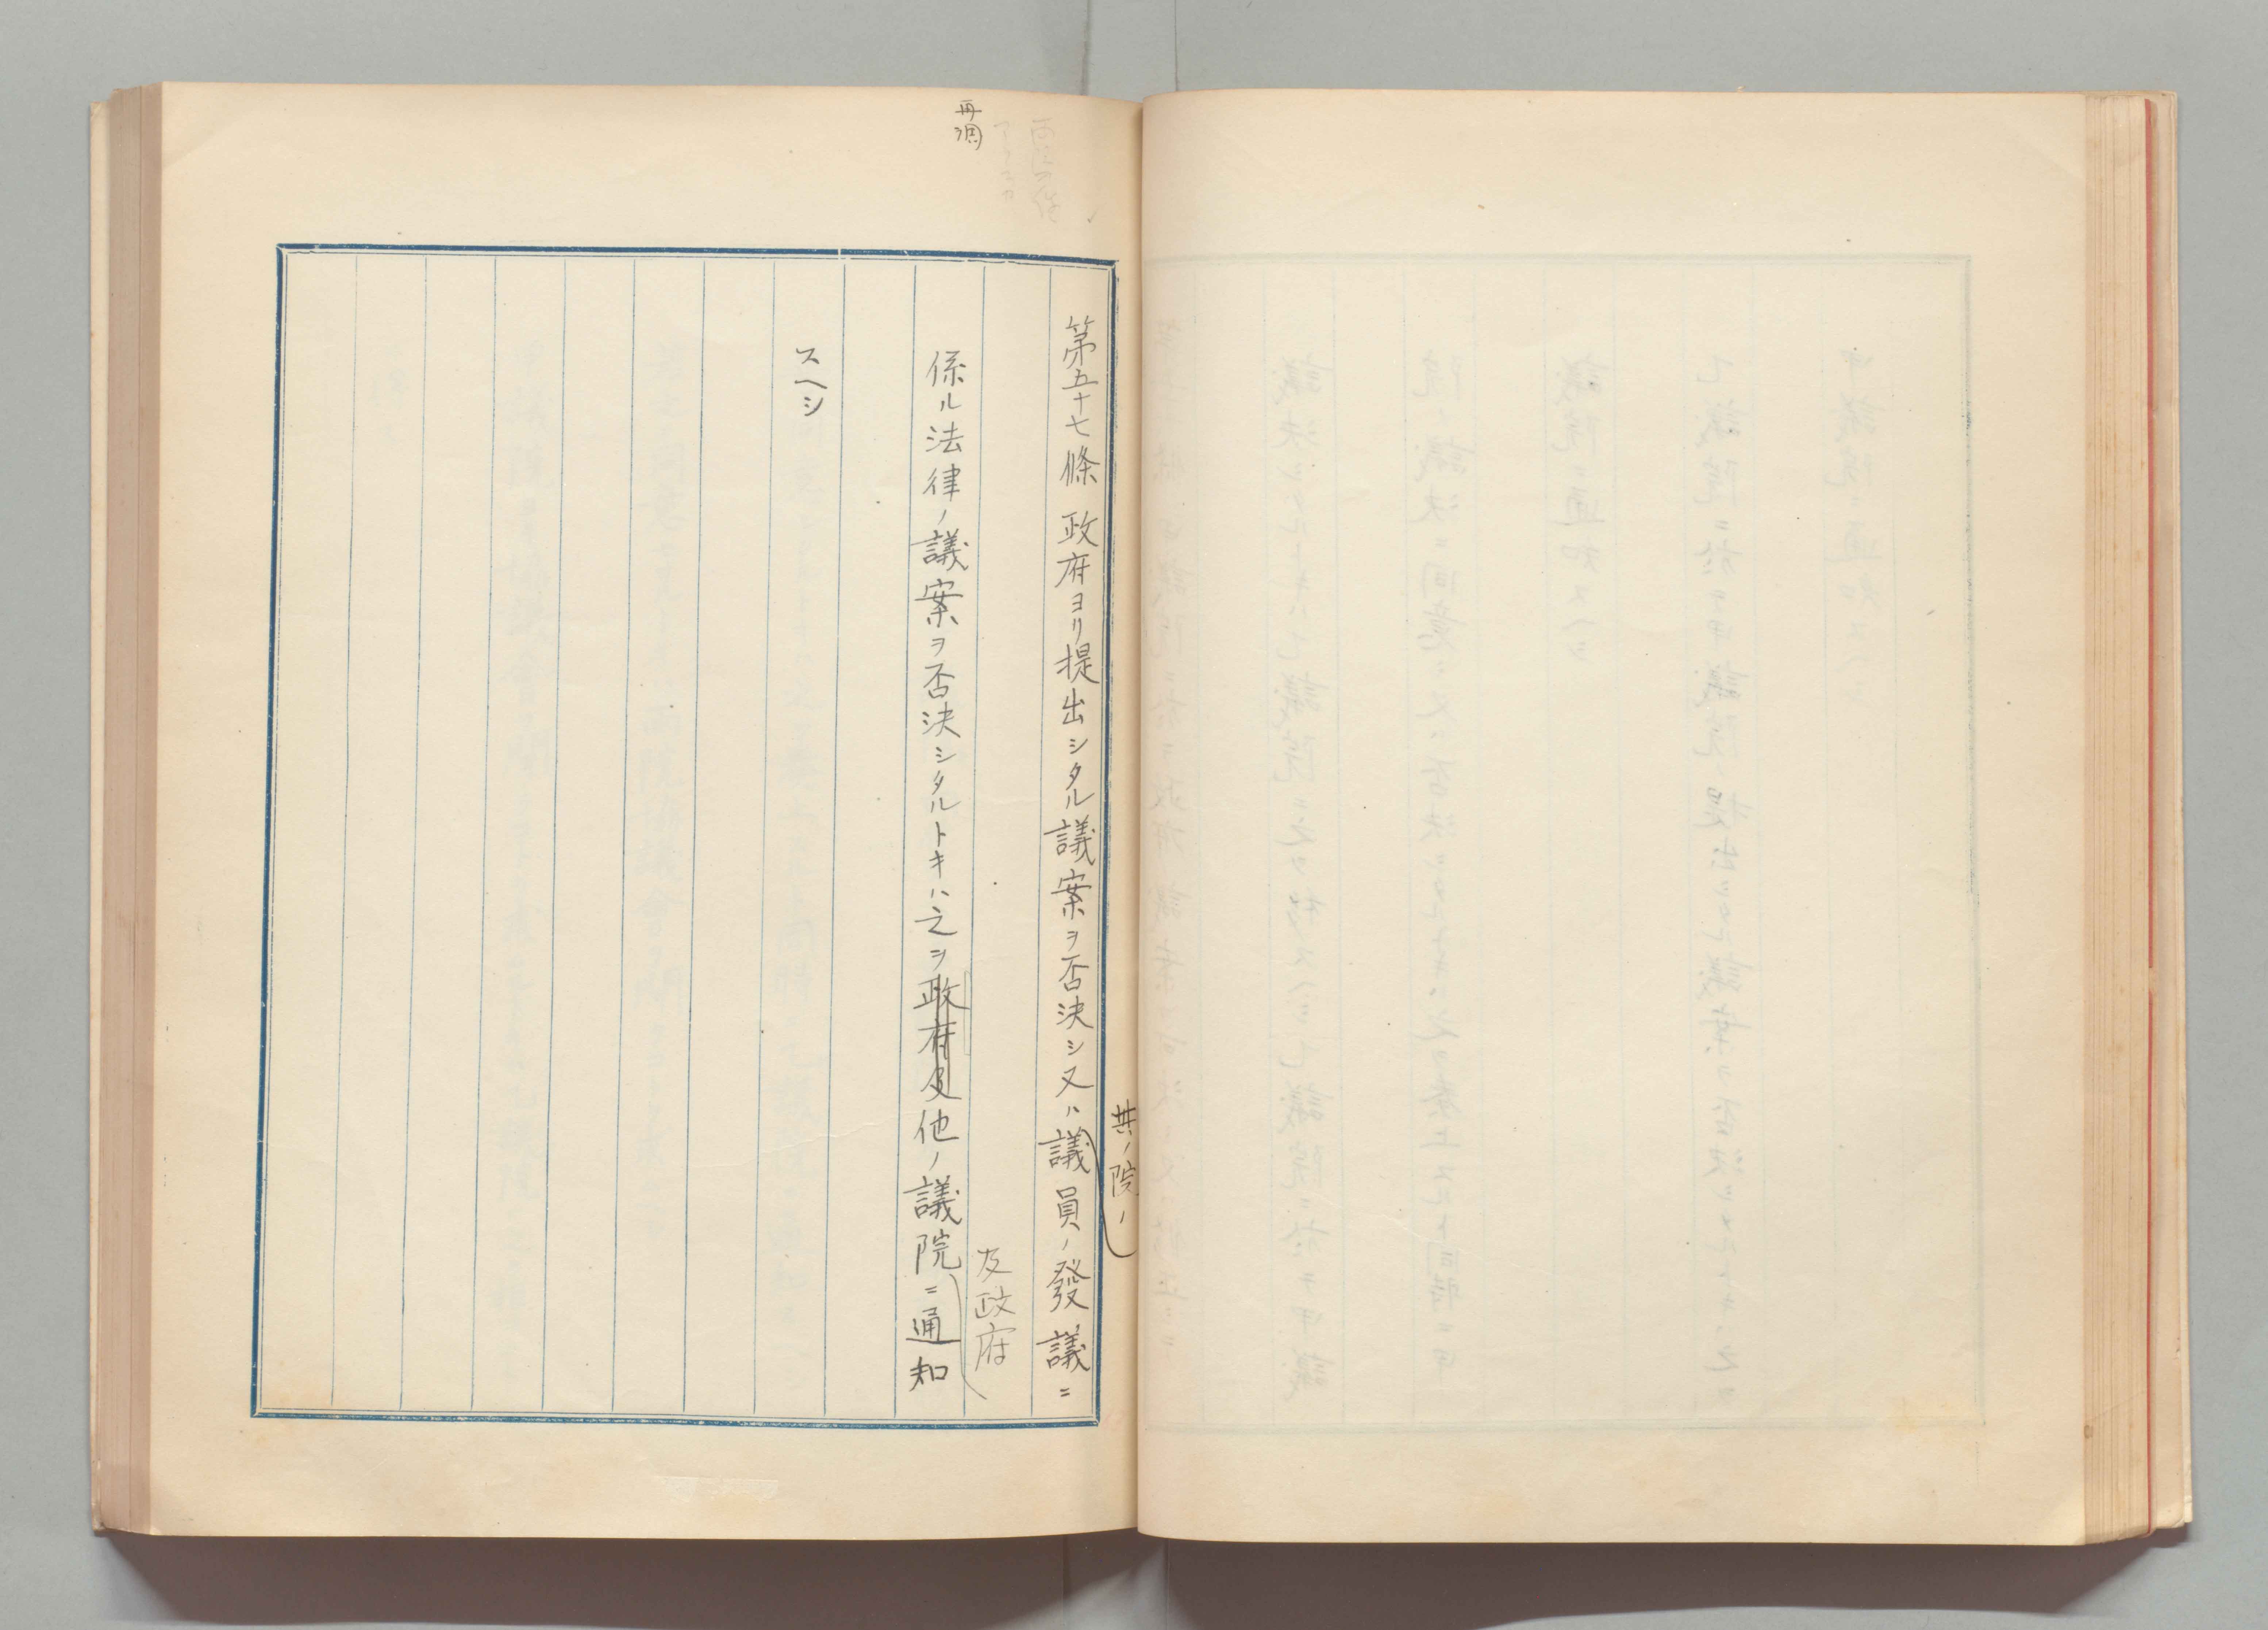 再調
第五十七條 政府ヨリ提出シタル議案ヲ否決シ又ハ議員ノ發議ニ
其ノ院ノ
係ル法律ノ議案ヲ否決シタルトキハ之ヲ政府及他ノ議院ニ通知
及政府
スヘシ